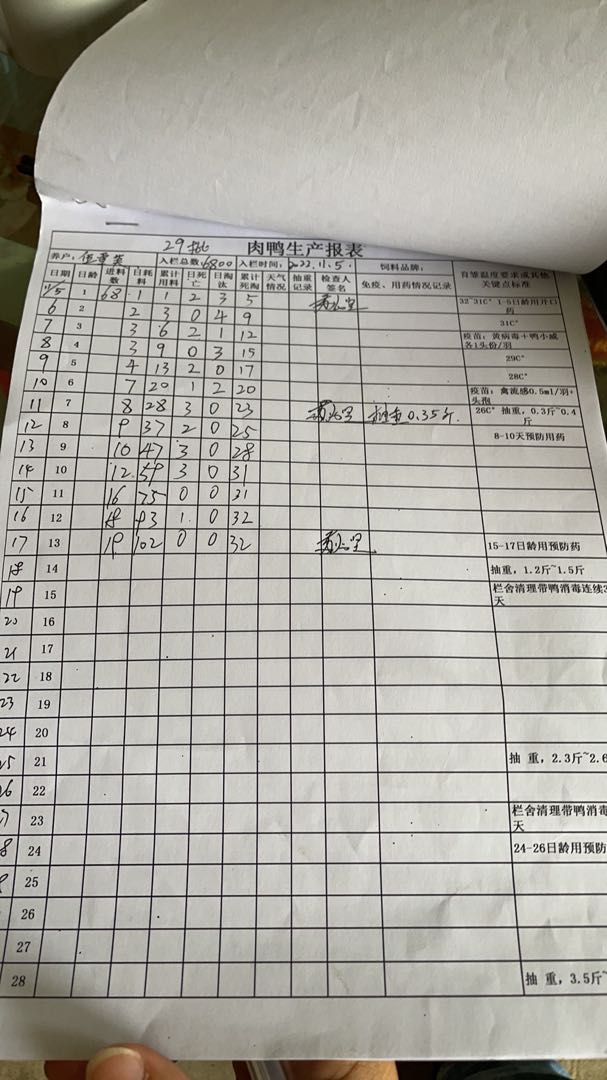 29批 肉鸭生产报表
养户: 入栏总数: 6800 入栏时间: 2022.11.5. 饲料品牌:
日期 日龄 进料数 日耗料 累计用料 日死亡 日淘汰 累计死淘 天气情况 抽重记录 检查人签名 免疫、用药情况记录 育雏温度要求或其他关键点标准
11/5 1 68 1 1 2 3 5 32~31C° 1-5日龄用开口药
6 2 2 3 0 4 9 31C°
7 3 3 6 2 1 12 疫苗:黄病毒+鸭小或各1头份/羽
8 4 3 9 0 3 15
9 5 4 13 2 0 17 29C°
10 6 7 20 1 2 20 28C°
疫苗:禽流感0.5ml/羽+头孢
11 7 8 28 3 0 23 抽重0.35斤. 26C° 抽重,0.3斤~0.4斤
12 8 9 37 2 0 25 8-10天预防用药
13 9 10 47 3 0 28
14 10 12 59 3 0 31
15 11 16 75 0 0 31
16 12 18 93 1 0 32
17 13 19 102 0 0 32 15-17日龄用预防药
18 14 抽重,1.2斤~1.5斤
19 15 栏舍清理带鸭消毒连续3天
20 16
21 17
22 18
23 19
24 20
25 21 抽 重,2.3斤~2.6
26 22
7 23 栏舍清理带鸭消毒 天
8 24 24-26日龄用预防
25
26
27
28 抽 重,3.5斤~